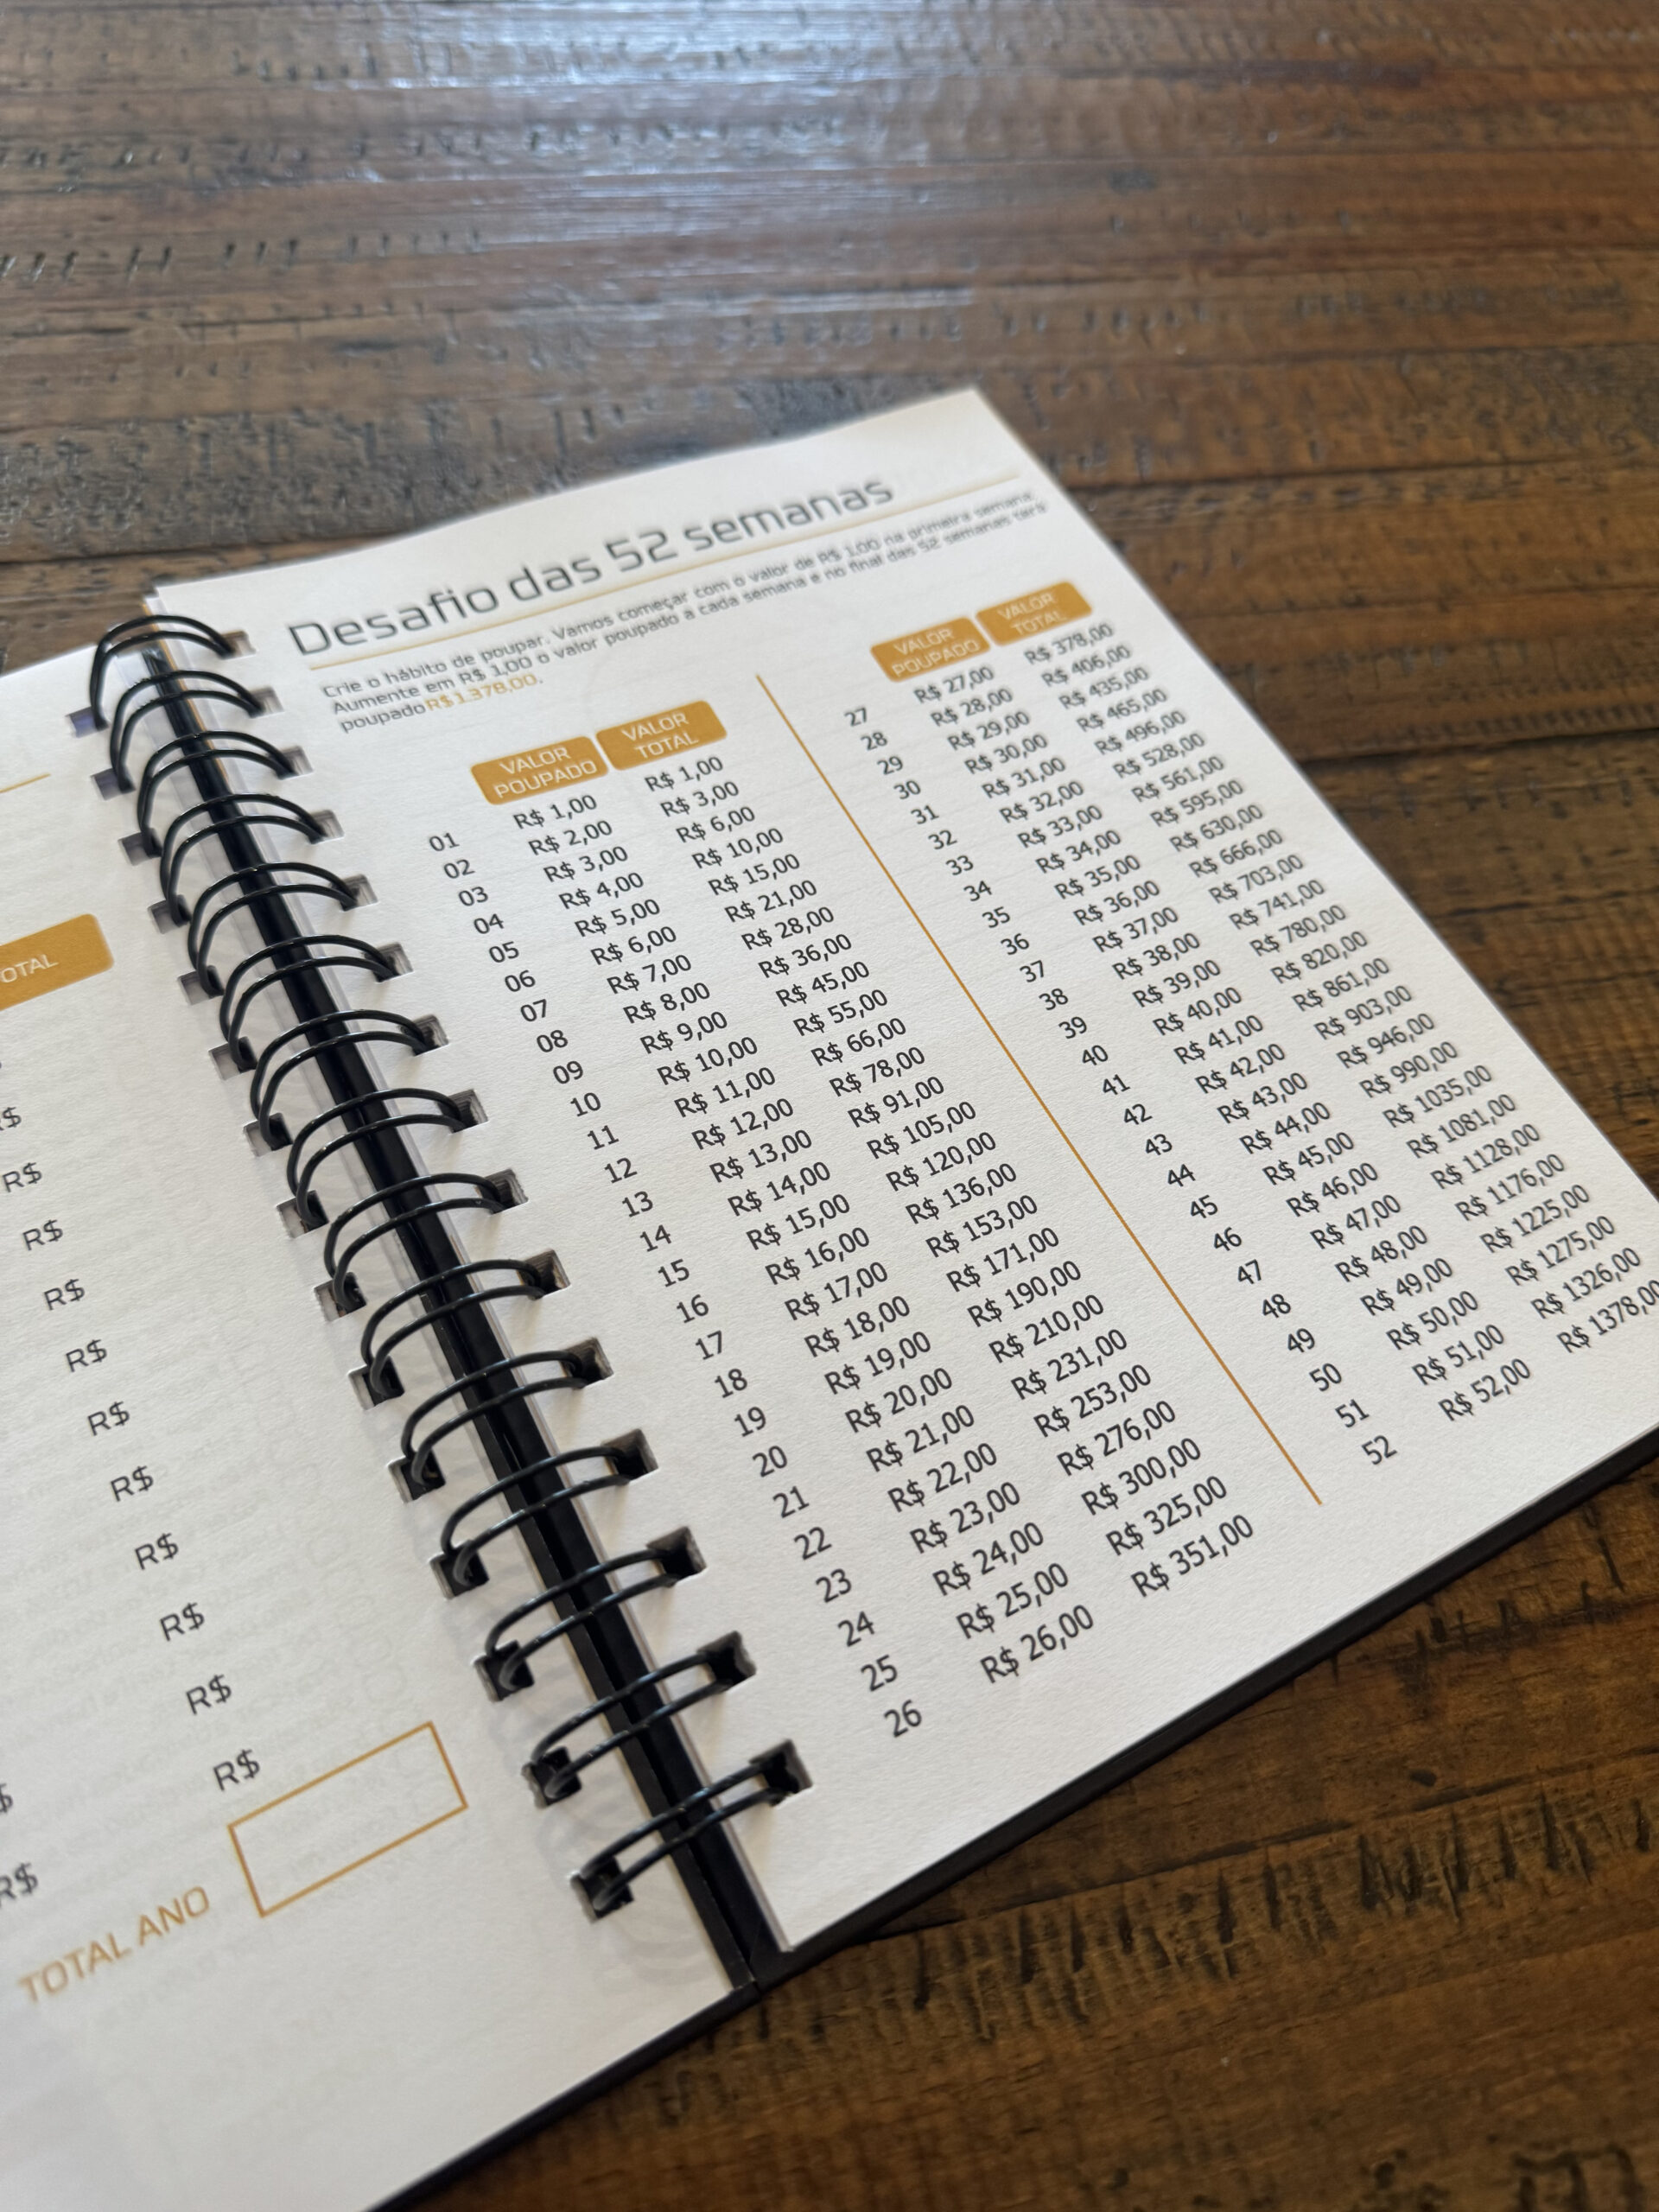 OTAL
R$
R$
R$
R$
R$
R$
R$
R$
R$
R$
R$
R$
TOTAL ANO
Desafio das 52 semanas
Crie o hábito de poupar. Vamos começar com o valor de R$ 1,00 na primeira semana.
Aumente em R$ 1,00 o valor poupado a cada semana e no final das 52 semanas terá
poupado R$ 1.378,00.
VALOR POUPADO VALOR TOTAL
01 R$ 1,00 R$ 1,00
02 R$ 2,00 R$ 3,00
03 R$ 3,00 R$ 6,00
04 R$ 4,00 R$ 10,00
05 R$ 5,00 R$ 15,00
06 R$ 6,00 R$ 21,00
07 R$ 7,00 R$ 28,00
08 R$ 8,00 R$ 36,00
09 R$ 9,00 R$ 45,00
10 R$ 10,00 R$ 55,00
11 R$ 11,00 R$ 66,00
12 R$ 12,00 R$ 78,00
13 R$ 13,00 R$ 91,00
14 R$ 14,00 R$ 105,00
15 R$ 15,00 R$ 120,00
16 R$ 16,00 R$ 136,00
17 R$ 17,00 R$ 153,00
18 R$ 18,00 R$ 171,00
19 R$ 19,00 R$ 190,00
20 R$ 20,00 R$ 210,00
21 R$ 21,00 R$ 231,00
22 R$ 22,00 R$ 253,00
23 R$ 23,00 R$ 276,00
24 R$ 24,00 R$ 300,00
25 R$ 25,00 R$ 325,00
26 R$ 26,00 R$ 351,00
VALOR POUPADO VALOR TOTAL
27 R$ 27,00 R$ 378,00
28 R$ 28,00 R$ 406,00
29 R$ 29,00 R$ 435,00
30 R$ 30,00 R$ 465,00
31 R$ 31,00 R$ 496,00
32 R$ 32,00 R$ 528,00
33 R$ 33,00 R$ 561,00
34 R$ 34,00 R$ 595,00
35 R$ 35,00 R$ 630,00
36 R$ 36,00 R$ 666,00
37 R$ 37,00 R$ 703,00
38 R$ 38,00 R$ 741,00
39 R$ 39,00 R$ 780,00
40 R$ 40,00 R$ 820,00
41 R$ 41,00 R$ 861,00
42 R$ 42,00 R$ 903,00
43 R$ 43,00 R$ 946,00
44 R$ 44,00 R$ 990,00
45 R$ 45,00 R$ 1035,00
46 R$ 46,00 R$ 1081,00
47 R$ 47,00 R$ 1128,00
48 R$ 48,00 R$ 1176,00
49 R$ 49,00 R$ 1225,00
50 R$ 50,00 R$ 1275,00
51 R$ 51,00 R$ 1326,00
52 R$ 52,00 R$ 1378,00